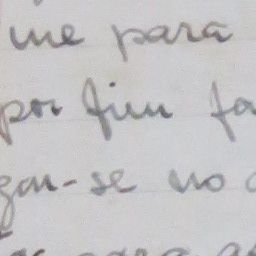 me para
por fim fa
gou-se no